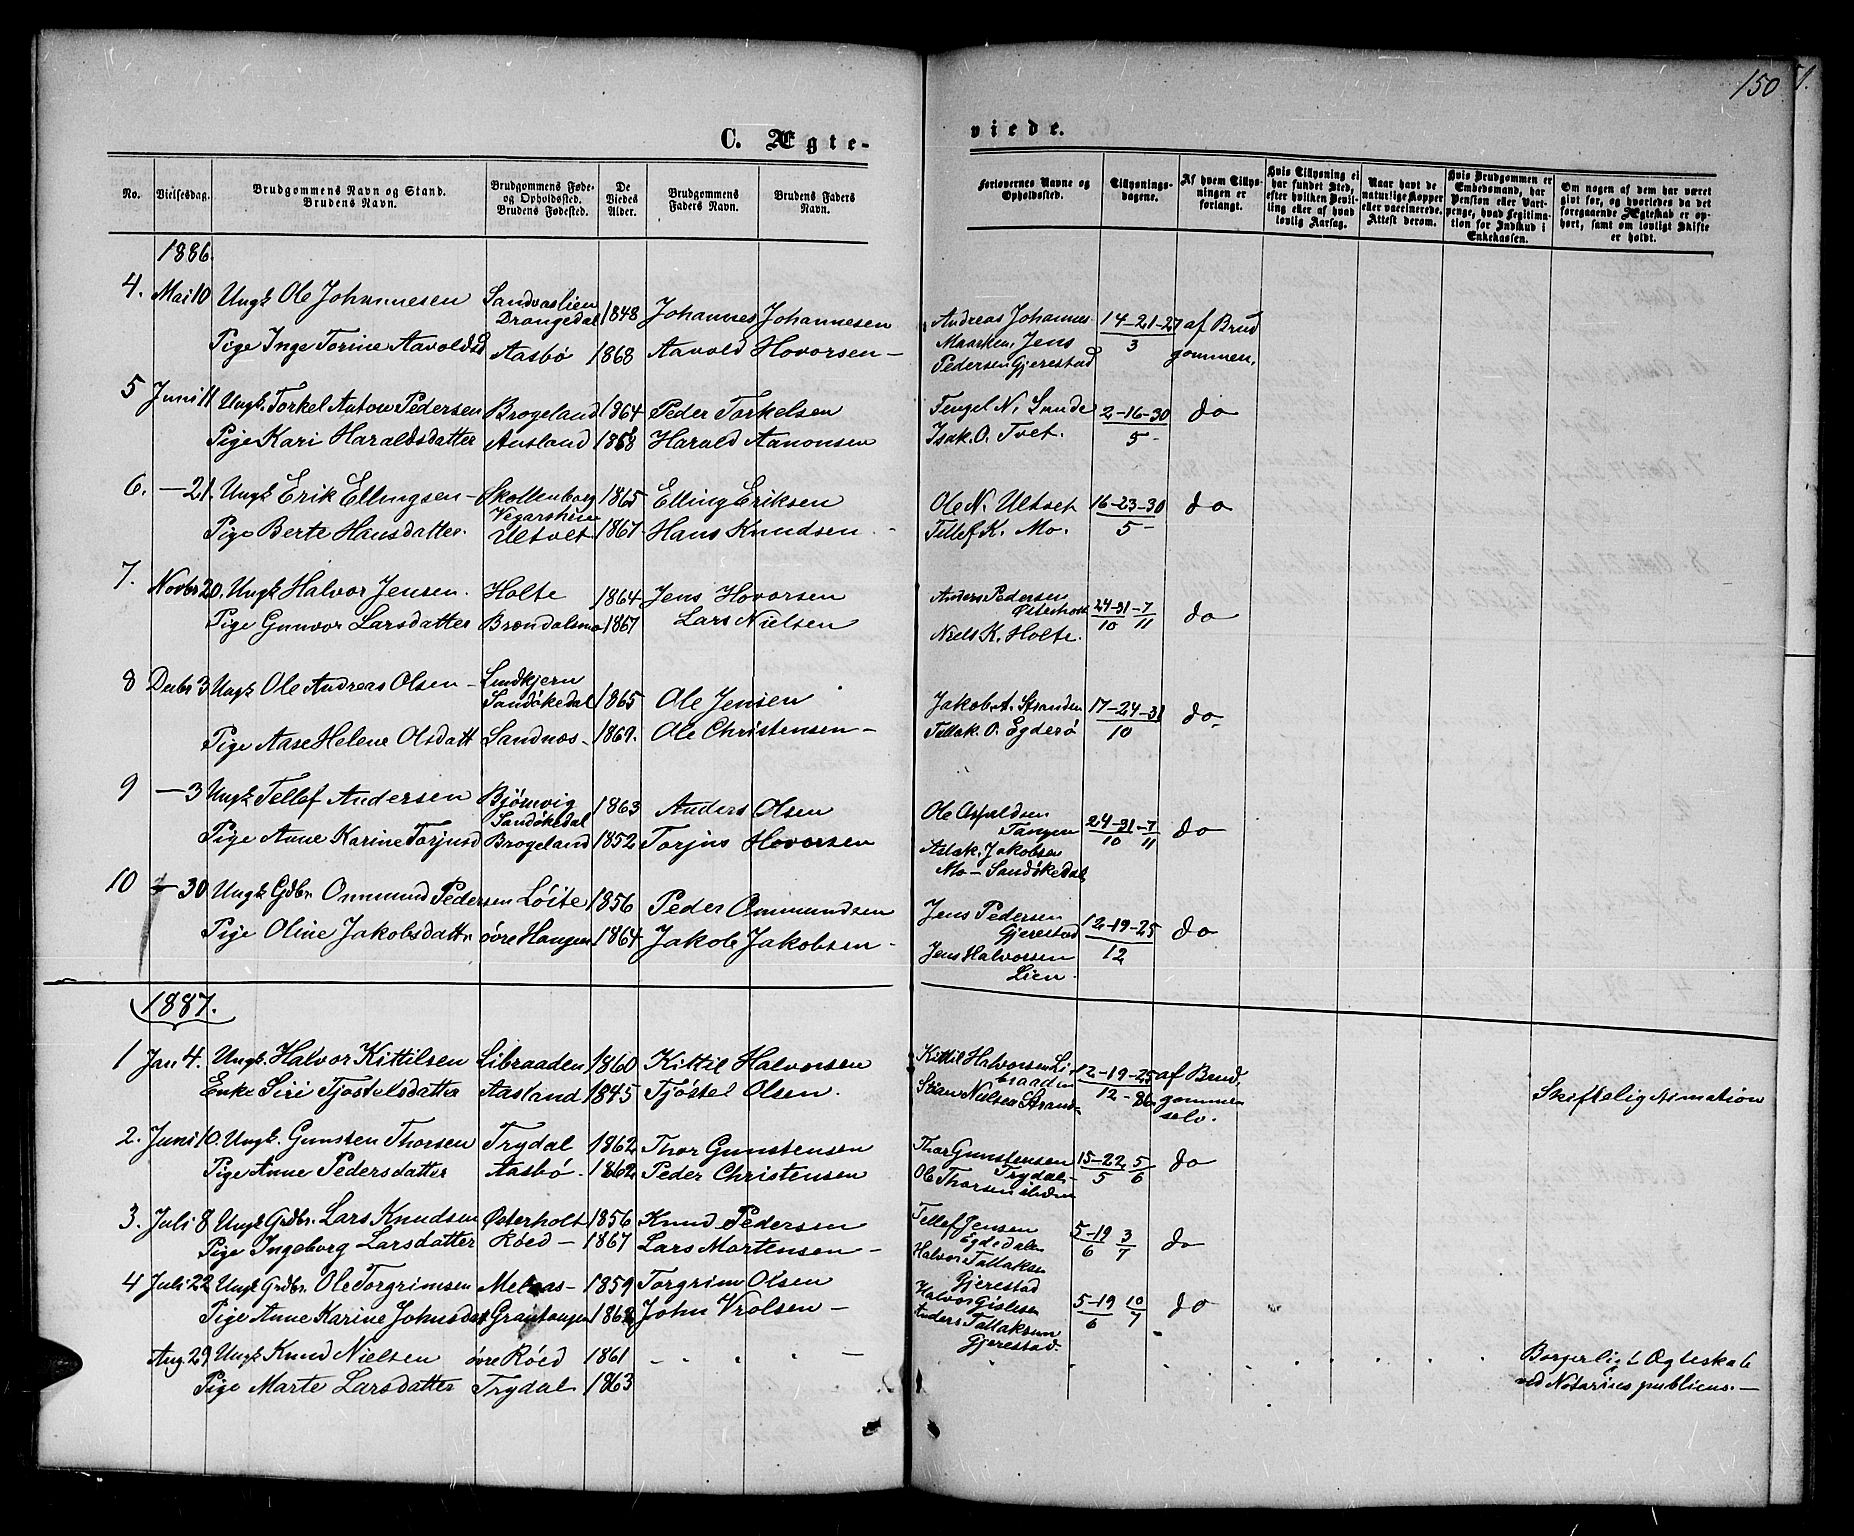 150
C. Ægte-
viede.
No.
Vielsesdag.
Brudgommens Navn og Stand.
Brudens Navn.
Brudgommens Føde-
og Opholdsted.
Brudens Fødested.
De
Viedes
Alder.
Brudgommens
Faders Navn.
Brudens Faders
Navn.
Forlovernes Navne og
Opholdsted.
Tillysnings-
dagene.
Af hvem Tillys-
ningen er
forlangt.
Hvis Tillysning ei
har fundet Sted,
efter hvilken Bevil-
ling eller af hvad
lovlig Aarsag.
Naar havt de
naturlige Kopper
eller vaccinerede.
Attest derom.
Hvis Brudgommen er
Embedsmand, har
Pension eller Vart-
penge, hvad Legitima-
tion for Indskud i
Enkekassen.
Om nogen af dem har været
givt før, og hvorledes da det
foregaaende Ægteskab er op-
hørt, samt om lovligt Skifte
er holdt.
1886.
4. Mai 10 Ungk Ole Johannesen Sandvaslien Drangedal 1848 Johannes Johannesen
Pige Inge Torine Aavoldsd Aasbö 1868 Aavold Hovorsen -
Andreas Johannes
Jens
Pedersen Gjerestad
14-21-27
3
af Brud
gommen.
5 Juni 11 Ungk. Torkel Antow Pedersen Brogeland 1864 Peder Torkelsen
Pige Kari Haraldsdatter Ausland 1868 Harald Aanonsen
Tengel N. Sunde
Isak. O. Tvet.
2-16-30
5-
do
6. - 21. Ungk Erik Ellingsen - Skollenborg Vegarsheien 1865 Elling Eriksen
Pige Berte Hansdatter. Ultvet 1867 Hans Knudsen
Ole N. Ultvet
Tellef K. Mo.
16-23-30
5-
do
7. Novbr 20. Ungk Halvor Jensen. Holte 1864 Jens Hovorsen
Pige Gunvor Larsdatter Brændalsmo 1867 Lars Nielsen
Anders Pedersen
Østerholt
Niels K. Holte.
24-31-7
10 11
do
8 Decbr 3 Ungk Ole Andreas Olsen - Lindkjern Sandökedal 1865 Ole Jensen
Pige Aase Helene Olsdatt Sandnæs - 1867. Ole Christensen -
Jakob A. Stranden
Tellak. O. Egderö
17-24-31
10
do
9 - 3 Ungk Tellef Andersen Bjørnvig Sandökedal 1863 Anders Olsen
Pige Anne Karine Torjusd Brogeland 1852 Torjus Hovorsen
Ole Osfuldsen
Tangen
Aslak. Jakobsen
Mo - Sandökedal
24-31-7
10 11
do
10 - 30 Ungk Gdbr. Onmund Pedersen Löite 1856 Peder Onmundsen
Pige Oline Jakobsdattr. øvre Haugen 1864 Jakob Jakobsen -
Jens Pedersen
Gjerestad
Jens Halvorsen
Lien
12-19-25
12
do
1887.
1 Jan. 4. Ungk. Halvor Kittilsen Libraaden 1860 Kittil Halvorsen
Enke Siri Tjöstelsdatter Aasland 1845 Tjöstel Olsen.
Kittil Halvorsen Li
braaden
Stian Nielsen Strand-
12-19-25
12 - 86
af Brud
gommen
selv.
Skiftelig
2. Juni 10. Ungk. Gunsten Thorsen Trydal 1862 Thor Gunstensen
Pige Anne Pedersdatter Aasbö. 1862 Peder Christensen
Thor Gunstensen
Trydal
Ole Thorsen
15-22 5
5 6
do
3. Juli 8 Ungk Grdbr. Lars Knudsen Østerholt 1856 Knud Pedersen
Pige Ingeborg Larsdatter Röed - 1867 Lars Mortensen -
Tellef Jensen
Egdedalen
Halvor Tallaksen
Gjerestad
5-19 3
6 7
do
4 Juli 22 Ungk Grdbr. Ole Torgrimsen Melaas - 1859 Torgrim Olsen
Pige Anne Karine Johnsdat Grantangen 1868 John Vrolsen -
Halvor Gislesen
Anders Tallaksen
Gjerestad.
5-19 10
6 7
do
Aug. 29 Ungk Knud Nielsen øvre Röed 1861
Pige Marte Larsdatter Trydal 1863
Borgerligt Ægteskab
ved Notarius publicus. -